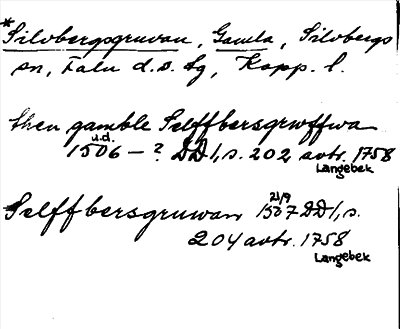 *Silvbergsgruvan, Gamla, Silvbergs
sn, Falu d.s. tg, Kopp. l.
then gamble Selffbersgrwffwa
u.d.
1506 – ? DD1, s. 202 avtr. 1758
Langebek
Selffbersgruwan 21/9 1507 DD1, s.
204 avtr. 1758
Langebek